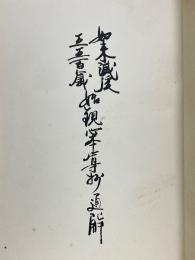 如来滅後
五五百歳始観心本尊抄通解